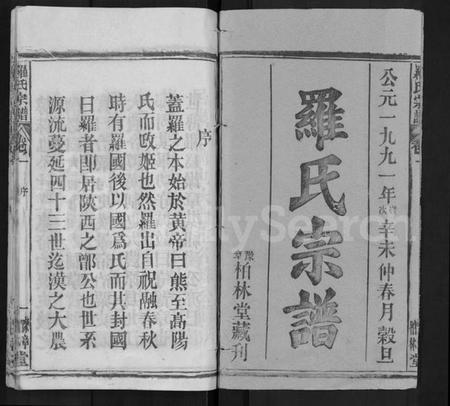 公元一九九一年歲次辛未仲春月穀旦
羅氏宗譜
豫章柏林堂藏刊
序
蓋羅之本始於黃帝曰熊至高陽
氏而改姬也然羅出自祝融春秋
時有羅國後以國爲氏而其封國
曰羅者即居陝西之鄫公也世系
源流蔓延四十三世迄漢之大農
羅氏宗譜
卷一
序
一